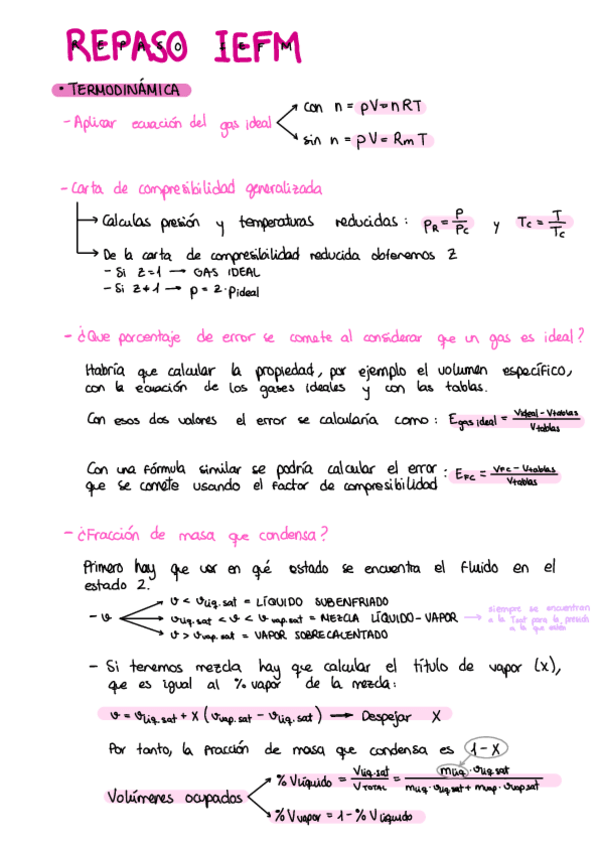 REPASO IEFM
• TERMODINÁMICA
- Aplicar ecuación del gas ideal
con n = pV=nRT
sin n = pV= RmT
- Carta de compresibilidad generalizada
Calculas presión y temperaturas reducidas: PR = P/Pc y Tc = T/Tc
De la carta de compresibilidad reducida obtenemos Z
- Si Z=1 → GAS IDEAL
- Si Z≠1 → p = Z·pideal
- ¿Que porcentaje de error se comete al considerar que un gas es ideal?
Habría que calcular la propiedad, por ejemplo el volumen específico,
con la ecuación de los gases ideales y con las tablas.
Con esos dos valores el error se calcularía como: Egas ideal = Videal - Vtablas / Vtablas
Con una fórmula similar se podría calcular el error
que se comete usando el factor de compresibilidad : EFC = VFC - Vtablas / Vtablas
- ¿Fracción de masa que condensa?
Primero hay que ver en qué estado se encuentra el fluido en el
estado 2.
- v
v < vliq.sat = LÍQUIDO SUBENFRIADO
vliq.sat < v < vvap.sat = MEZCLA LÍQUIDO-VAPOR → siempre se encuentran
a la Tsat para la presión
a la que estén
v > vvap.sat = VAPOR SOBRECALENTADO
- Si tenemos mezcla hay que calcular el título de vapor (x),
que es igual al % vapor de la mezcla:
v = vliq.sat + X (vvap.sat - vliq.sat) → Despejar X
Por tanto, la fracción de masa que condensa es 1-X
Volúmenes ocupados
% Vlíquido = Vliq.sat / VTOTAL = mliq·vliq.sat / mliq·vliq.sat + mvap·vvap.sat
% Vvapor = 1 - % Vlíquido